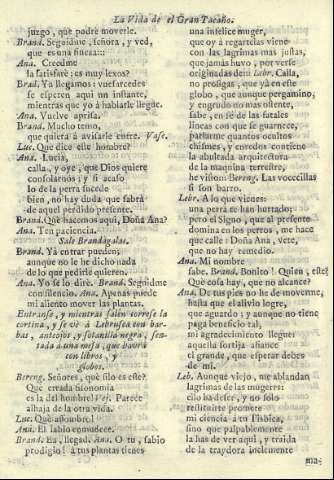 La Vida de el Gran Tacaño.
juzgo, que podrè moverle.
Brand. Seguidme, señora, y ved,
que es una fineza:::
Ana. Creedme
la satisfarè: es muy lexos?
Brand. Ya llegamos; vuesarcedes
se esperen aqui un instante,
mientras que yo à hablarle llegue.
Ana. Vuelve aprisa.
Brand. Mucho temo,
que quiera à avisarle entre. Vase.
Luc. Que dice este hombre?
Ana. Lucia,
calla, y oye, que Dios quiere
consolarnos; y si acaso
lo de la perra sucede
bien, no hay duda que sabrà
de aquel perdido presente.
Brand. Què hacemos aqui, Doña Ana?
Ana. Ten paciencia.
Sale Brandàgalas.
Brand. Yà entrar pueden;
aunque no le he dicho nada
de lo que pedirle quieren.
Ana. Yo se lo dirè. Brand. Seguidme
con silencio. Ana. Apenas puede
mi aliento mover las plantas.
Entranse, y mientras salen corrose la
cortina, y se vè à Lebrusca con bar-
bas, antojos, y sotanilla negra, sen-
tado à una mesa, que havrà
con libros, y
globos.
Bereng. Señores, què silo es este?
Què creada fisonomia
es la del hombre! Vej. Parece
alhaja de la otra vida.
Luc. Què assombro!
Ana. El sabio enmudece.
Brand. Ea, llegad. Ana. O tu, sabio
prodigio! à tus plantas tienes
una infelice muger,
que oy à regartelas viene
con las lagrimas mas justas,
que jamàs huvo, por verse
originadas de::: Lebr. Calla,
no prosigas, que yà en este
globo, aunque pergamino,
y engrudo no mas ostente,
sabe, en fè de las fatales
lineas con que se guarnece,
parlarme quantos ocultos
chismes, y enredos contiene
la abultada arquitectura
de la maquina terrestre,
y si son: Bereng. Las vocecillas
si son barro.
Lebr. A lo que vienes:
una perra te han hurtado;
pero el Signo, que al presente
domina en los perros, me hace
que calle: Doña Ana, vete,
que no hay remedio.
Ana. Mi nombre
sabe. Brand. Bonito! Quien, este?
Què cosa hay, que no alcance?
Ana. De tus pies no he de moverme,
hasta que el alivio logre,
que aguardo; y aunque no tiene
paga beneficio tal,
mi agradecimiento llegue:
aquella sortija afiance
el grande, que esperar debes
de mi.
Leb. Aunque viejo, me ablandan
lagrimas de las mugeres:
ello ha de ser, y no solo
restituirte promete
mi ciencia à tu Tisbica,
sino que palpablemente
la has de ver aqui, y traida
de la traydora inclemente
ma-